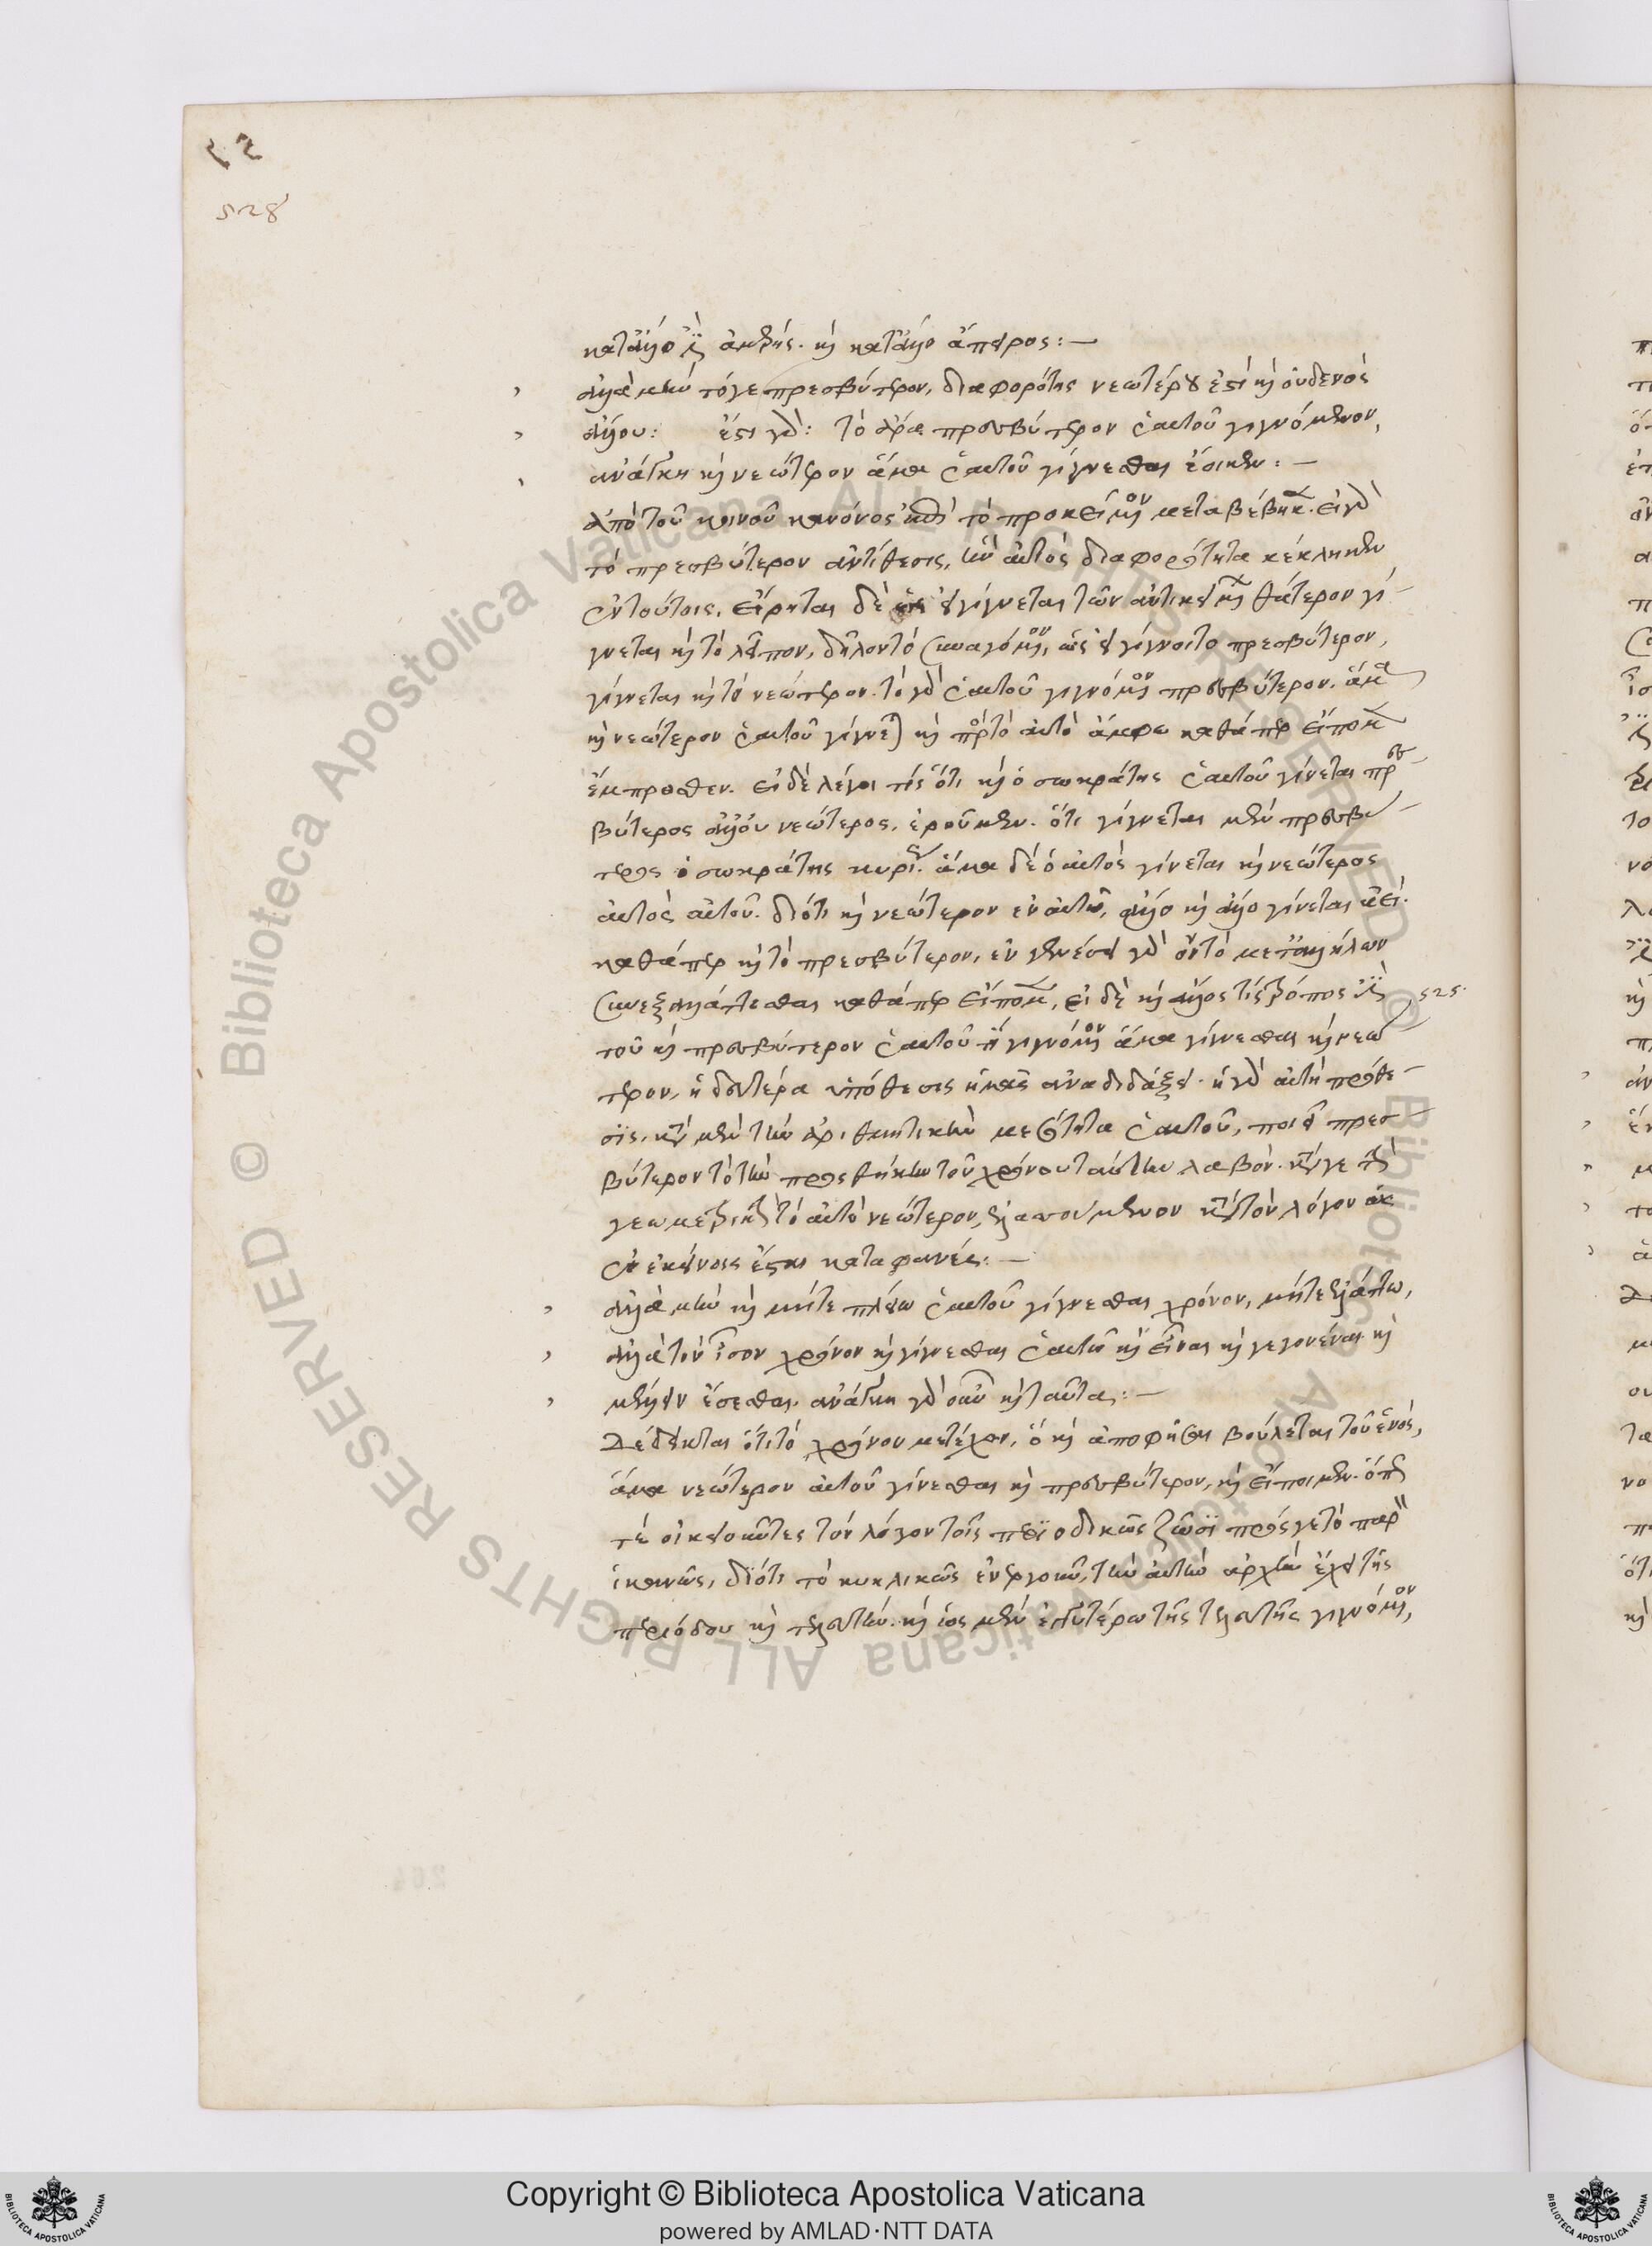 528
κατ' ἄλλο ἐστὶν ἀμερής. καὶ κατ' ἄλλο ἄπειρος: —
ἀλλὰ μὴν τόγε πρεσβύτερον, διαφορότης νεωτέρου ἐστὶ καὶ οὐδενὸς
ἄλλου: ἔστι γάρ: τὸ ἄρα πρεσβύτερον ἑαυτοῦ γιγνόμενον,
ἀνάγκη καὶ νεώτερον ἅμα ἑαυτοῦ γίγνεσθαι ἔοικεν: —
ἀπὸ τοῦ κοινοῦ κανόνος ἐπὶ τὸ προκείμενον μεταβέβηκεν. εἰ γὰρ
τὸ πρεσβύτερον ἀντίθεσις, ἣν αὐτὸς διαφορότητα κέκληκεν
ἐν τούτοις, εἴρηται δὲ ὡς εἰ γίγνεται τῶν ἀντικειμένων θάτερον γί-
γνεται καὶ τὸ λεῖπον, δῆλον τὸ συναγόμενον, ὡς εἰ γίγνοιτο πρεσβύτερον,
γίγνεται καὶ τὸ νεώτερον. τὸ γὰρ ἑαυτοῦ γιγνόμενον πρεσβύτερον. ἅμα
καὶ νεώτερον ἑαυτοῦ γίγνεται καὶ πρὸς τὸ αὐτὸ ἄμφω καθάπερ εἴπομεν
ἔμπροσθεν. εἰ δὲ λέγοι τίς ὅτι καὶ ὁ σωκράτης ἑαυτοῦ γίνεται πρεσ-
βύτερος ἀλλ' οὐ νεώτερος, ἐροῦμεν. ὅτι γίγνεται μὲν πρεσβύ-
τερος ὁ σωκράτης κυρίως. ἅμα δὲ ὁ αὐτὸς γίνεται καὶ νεώτερος
αὐτὸς αὑτοῦ. διότι καὶ νεώτερον ἐν αὐτῷ, ἄλλο καὶ ἄλλο γίνεται ἀεί.
καθάπερ καὶ τὸ πρεσβύτερον, ἐν γενέσει γὰρ ὄντα μετ' ἀλλήλων
συνεξαλλάττεσθαι καθάπερ εἴπομεν, εἰ δὲ καὶ ἄλλος τίς τρόπος ἐστὶ 525.
τοῦ καὶ πρεσβύτερον ἑαυτοῦ τι γιγνόμενον ἅμα γίγνεσθαι καὶ νεώ
τερον, ἡ δευτέρα ὑπόθεσις ἡμᾶς ἀναδιδάξει. ἡ γὰρ αὐτὴ πρόσθε-
σις, κατὰ μὲν τὴν ἀριθμητικὴν μεσότητα ἑαυτοῦ, ποιεῖ πρεσ-
βύτερον τὸ τὴν προσθήκην τοῦ χρόνου ταύτην λαβόν. κατὰ γε τὴν
γεωμετρικὴν τὸ αὐτὸ νεώτερον, ἐλαττούμενον κατὰ τὸν λόγον ὡς
ἐν ἐκείνοις ἔσται καταφανές: —
ἀλλὰ μὴν καὶ μήτε πλείω ἑαυτοῦ γίγνεσθαι χρόνον, μήτε ἐλάττω,
ἀλλὰ τὸν ἴσον χρόνον καὶ γίγνεσθαι ἑαυτῷ καὶ εἶναι καὶ γεγονέναι καὶ
μέλλειν ἔσεσθαι. ἀνάγκη γὰρ οὖν καὶ ταῦτα: —
Δέδεικται ὅτι τὸ χρόνου μετέχον, ὃ καὶ ἀποφῆσαι βούλεται τοῦ ἑνός,
ἅμα νεώτερον αὑτοῦ γίνεσθαι καὶ πρεσβύτερον, καὶ εἴπομεν. ὅπως
τὲ οἰκειοῦντες τὸν λόγον τοῖς περιοδικῶς ζῶσι πρός γε τὸ παρὸν
ἱκανῶς, διότι τὸ κυκλικῶς ἐνεργοῦν, τὴν αὐτὴν ἀρχὴν ἔχει τῆς
περιόδου καὶ τελευτήν. καὶ ὡς μὲν ἐγγυτέρω τῆς τελευτῆς γιγνόμενον,